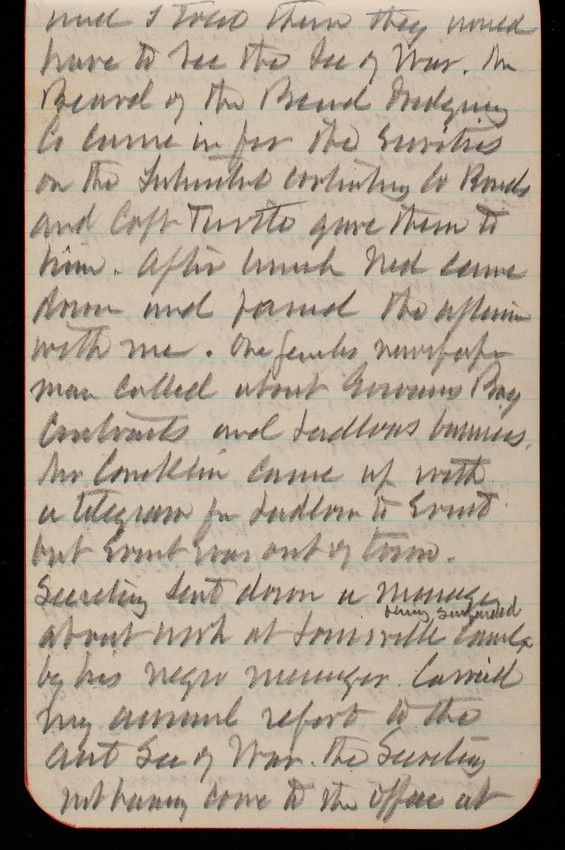 and I told them they would
have to see the Sec of War. Mr
Beard of the Beard Dredging
Co came in for the Securities
on the Submitted Co Bonds
and Capt Turtle gave them to
him. After lunch Ned came
down and passed the afternoon
with me. One newspaper
man called about Gowanus Bay
Contracts and Ludlows business.
Mr Conklin came up with
a telegram for Ludlow to Ernst
but Ernst was out of town.
Secretary sent down a message
being suspended
about work at Louisville Canal
by his negro messenger. Carried
my annual report to the
Asst Sec of War. the Secretary
not having come to the office at